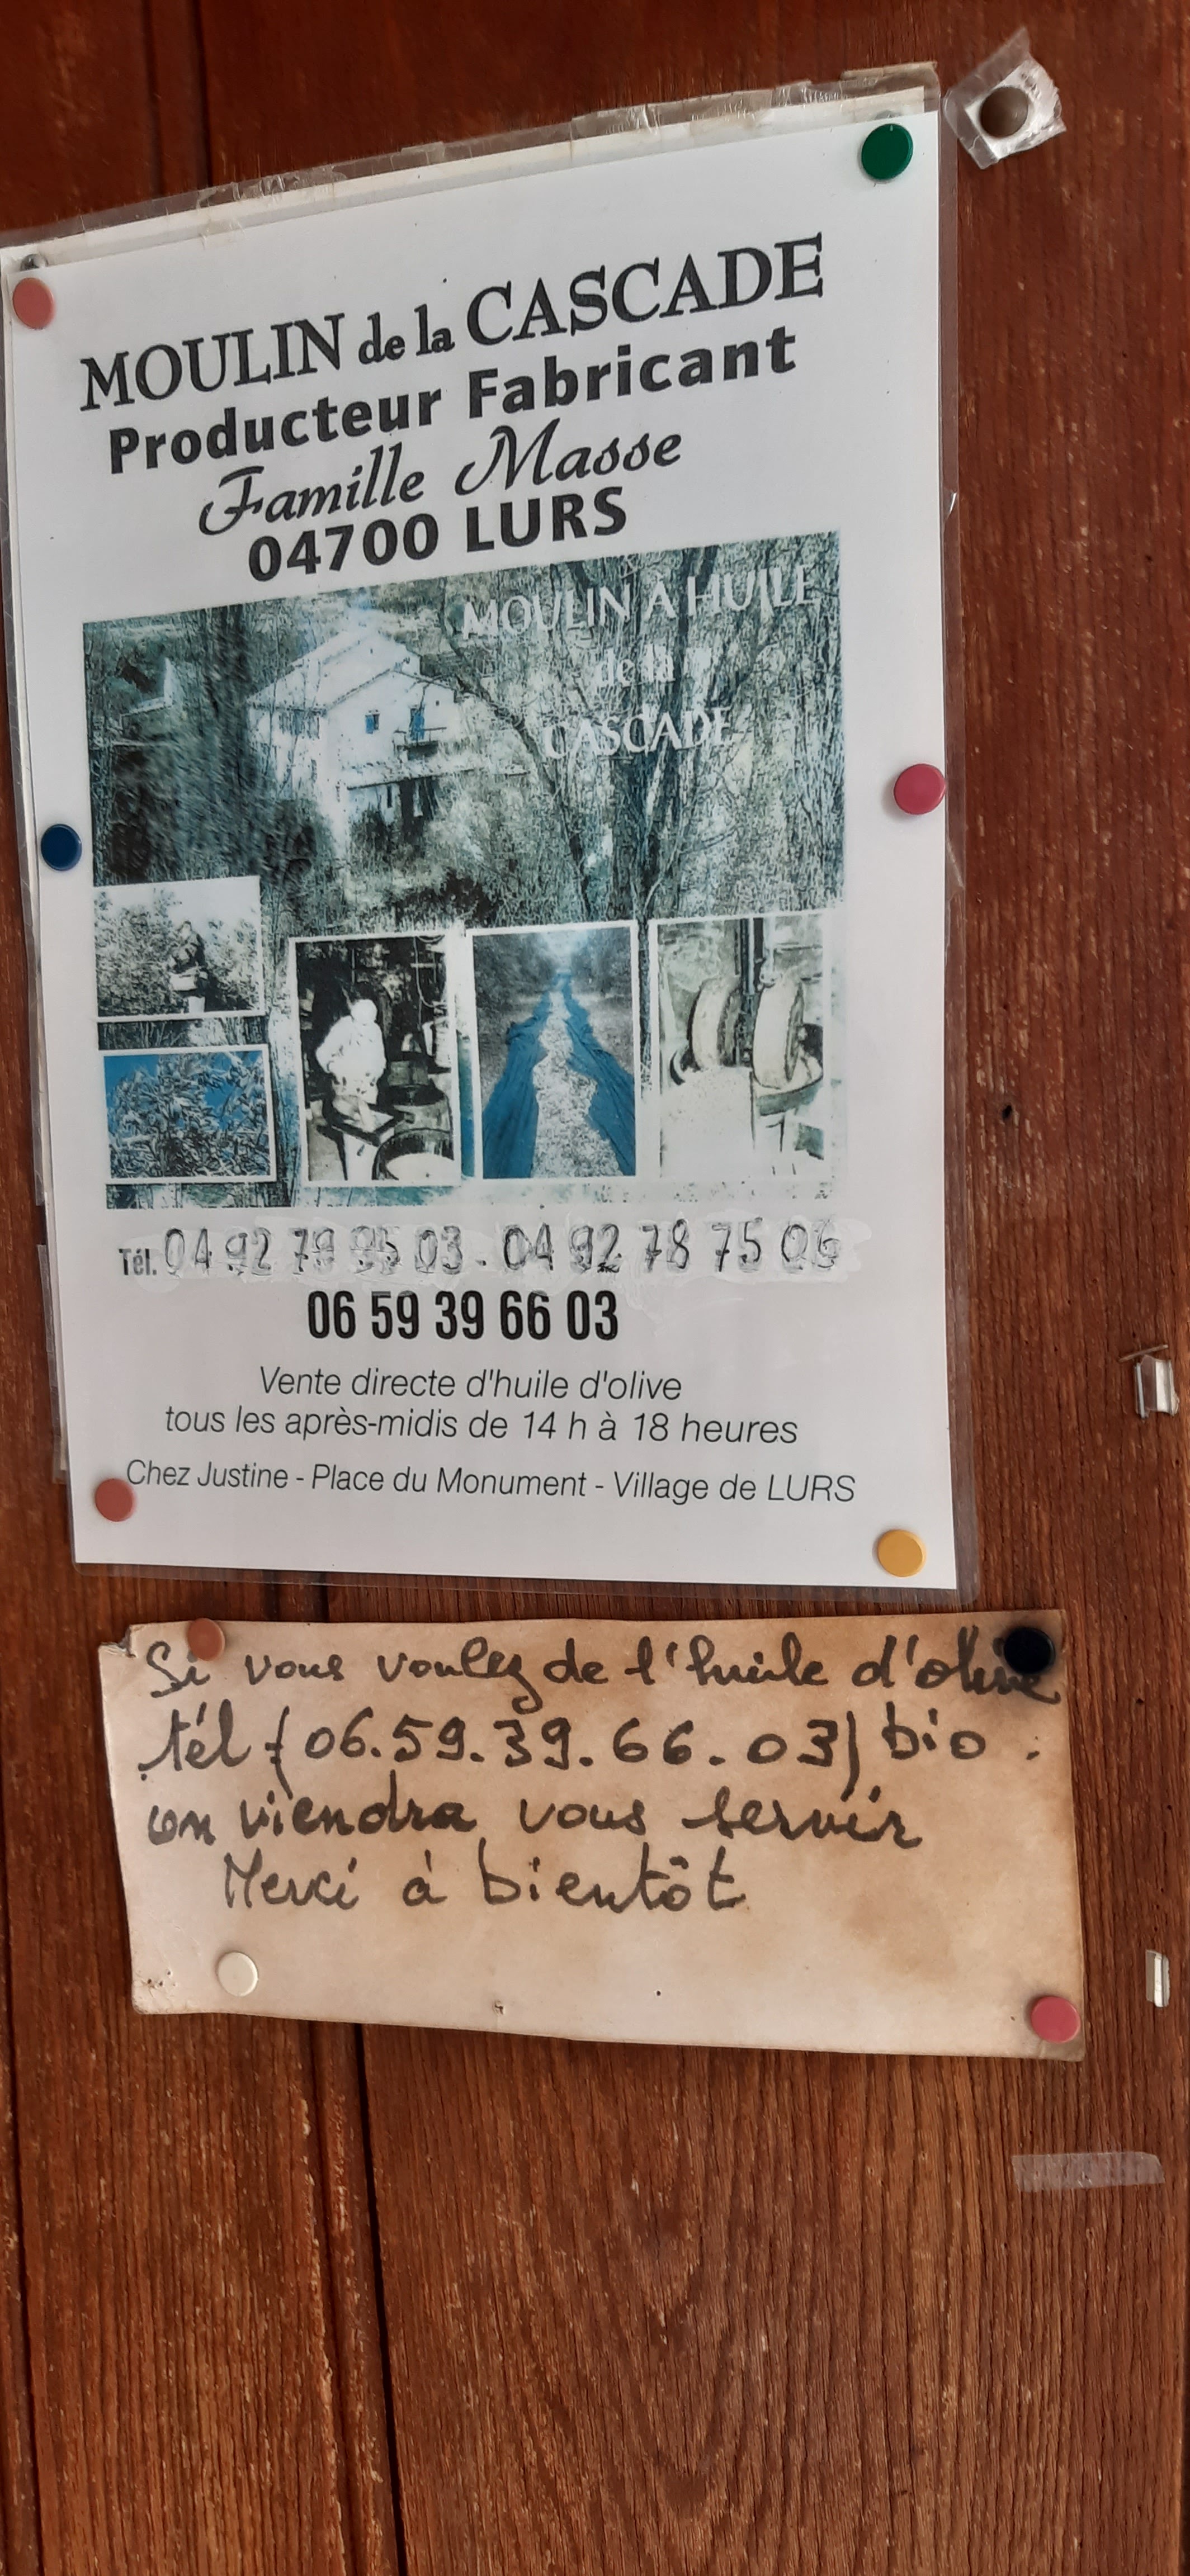 MOULIN de la CASCADE
Producteur Fabricant
Famille Masse
04700 LURS
MOULIN A HUILE
de la
CASCADE
Tél. 04 92 79 95 03 - 04 92 78 75 06
06 59 39 66 03
Vente directe d'huile d'olive
tous les après-midis de 14 h à 18 heures
Chez Justine - Place du Monument - Village de LURS
Si vous voulez de l'huile d'olive
tél (06.59.39.66.03) bio.
on viendra vous servir
Merci à bientôt